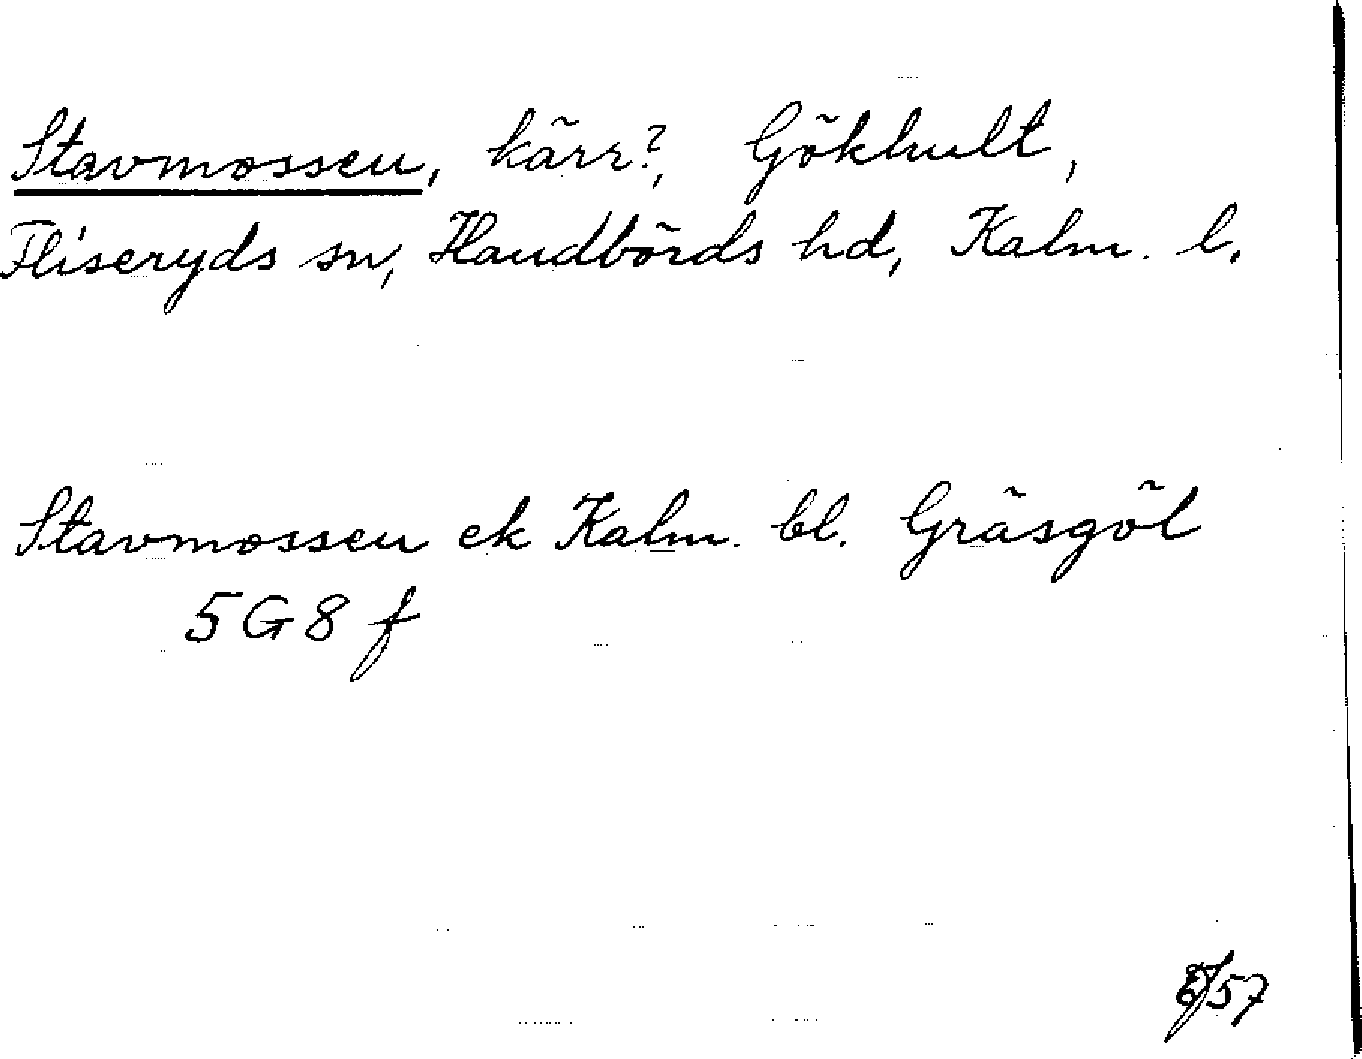 Stavmossen, kärr?, Gökhult,
Fliseryds sn, Handbörds hd, Kalm. l.
Stavmossen ek Kalm. bl. Gräsgöl
5G8f